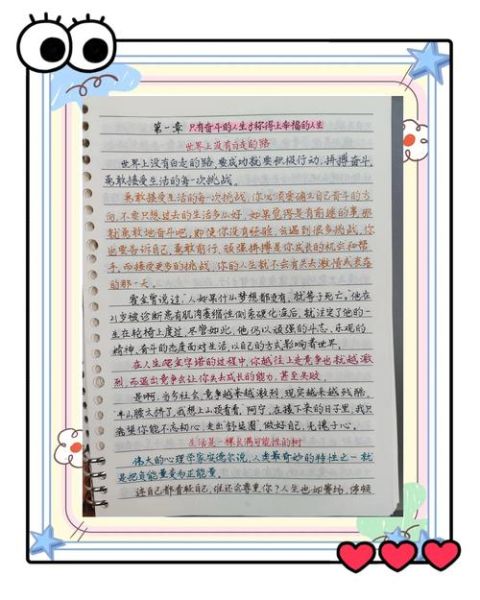 第一章 只有奋斗的人生才称得上幸福的人生
世界上没有白走的路
世界上没有白走的路,要成功就要积极行动,拼搏奋斗,
勇敢接受生活的每一次挑战。
勇敢接受生活的每一次挑战,你必须要确立自己奋斗的方
向,不要只想过去的生活多么好,如果觉得是有前途的事,那
就勇敢地奋斗吧,即使你没有经验,会遇到很多挑战,你
也要告诉自己,勇敢前行,顽强拼搏是你成长的机会和帮
手,而接受更多的挑战,你的人生就不会有失去激情或衰落
的那一天。
霍金曾说过:“人如果什么梦想都没有,就等于死亡。”他在
21岁被诊断患有肌肉萎缩性侧索硬化症后,就注定了他的一
生在轮椅上度过,尽管如此,他仍以顽强的斗志、乐观的
精神、奋斗的态度面对生活,以自己的方式影响着世界。
在人生爬金字塔的过程中,你越往上走竞争也就越激
烈,而退出竞争会让你失去成长的能力,甚至失败。
是啊,当今社会,竞争越来越激烈,现实越来越残酷。
半山腰太挤了,我想上山顶看看,阿宁,在接下来的日子里,我只
希望你能不忘初心,走出舒适圈,做好自己,无愧于心。
生活是一棵长满可能性的树
伟大的心理学家安德尔说,人类最奇妙的特性之一就
是把负能量变为正能量。
连自己都看轻自己,谁还会尊重你?人生也如赛场,